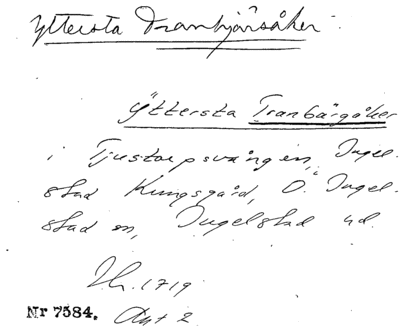 Yttersta Tranbjärsåker.
Yttersta Tranbärgåker
i Tjustorpsvången, Ingel-
stad Kungsgård, Ö. Ingel-
stad sn, Ingelstad hd.
Jb. 1719
Nr 7584. Akt 2